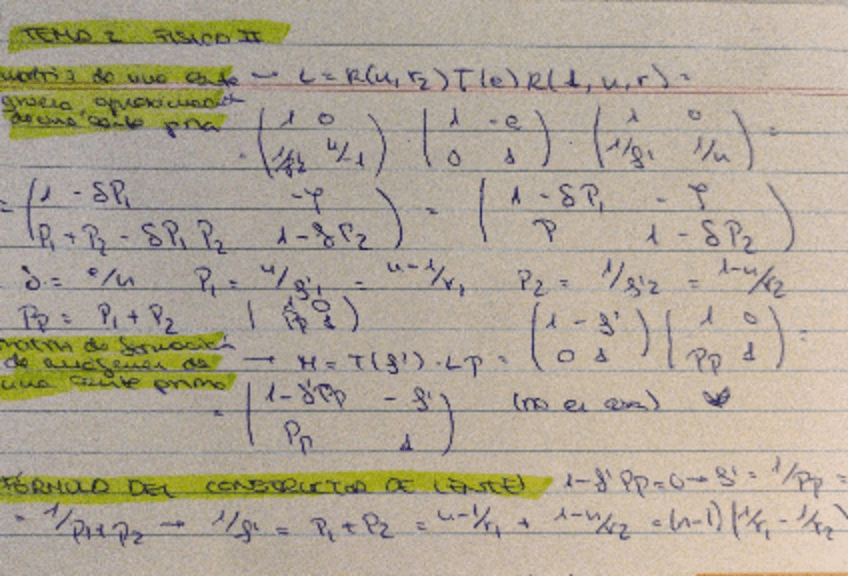 TEMA 2 FISICO II
matriz de una lente → L = R(n, r₂) T(e) R(1, n, r) =
gruesa, aproximación
de una lente
= (1 0; 1/f'₂ n/1) · (1 -e; 0 1) · (1 0; 1/f'₁ 1/n) =
= (1 - δP₁ -φ; P₁ + P₂ - δP₁P₂ 1 - δP₂) = (1 - δP₁ -φ; P 1 - δP₂)
δ = e/n P₁ = n/f'₁ = n-1/r₁ P₂ = 1/f'₂ = 1-n/r₂
Pp = P₁ + P₂ (1 0; Pp 1)
matriz de formación
de imágenes de → M = T(f') · Lp = (1 - f'; 0 1) (1 0; Pp 1) =
una lente
= (1 - f'Pp - f'; Pp 1) (no es cero)
FÓRMULA DEL CONSTRUCTOR DE LENTES 1 - f'Pp = 0 → f' = 1/Pp =
= 1/P₁+P₂ → 1/f' = P₁ + P₂ = n-1/r₁ + 1-n/r₂ = (n-1) (1/r₁ - 1/r₂)